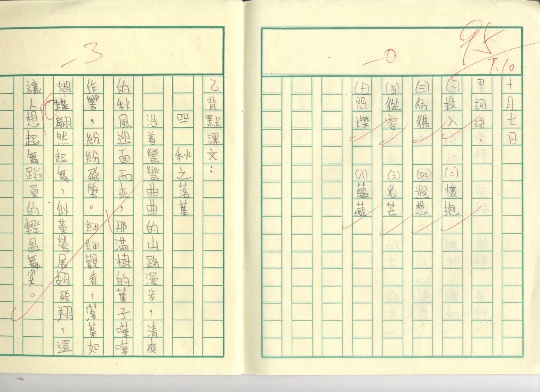 95
T.10
-0
十月七日
甲詞語:
(一)投入 (二)懷抱
(三)俗
(五)從容 (六)光芒
(七)照 (八)蘊藏
-3
乙背默課文:
四 秋之落葉
沿着彎彎曲曲的山路漫步,清爽
的秋風迎面而來,那滿樹的葉子嘩嘩
作響,紛紛飄墮。細細觀看,落葉如
蝴蝶翩然起舞,似黃鶯展翅飛翔,還
讓人想起舞蹈員的輕盈舞姿。